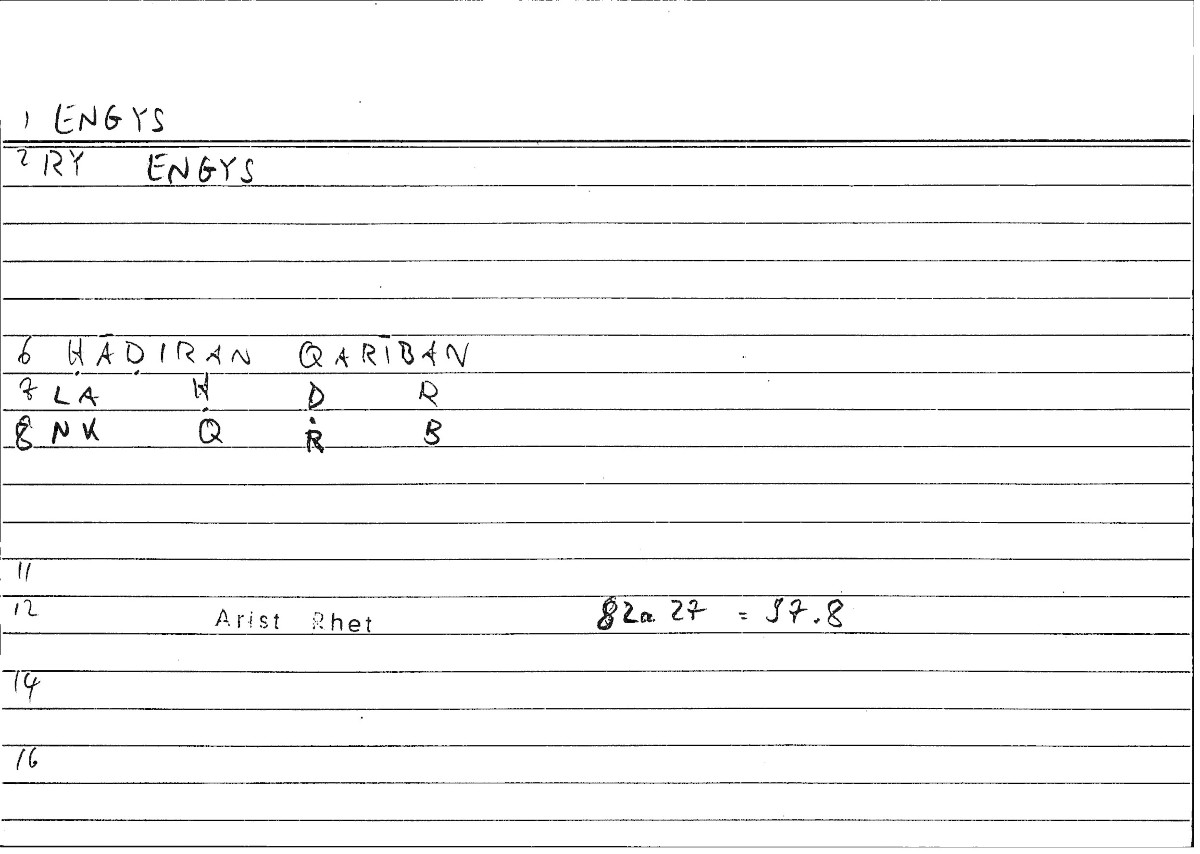 1 ENGYS
2 RY ENGYS
6 ḤĀḌIRAN QARĪBAN
7 LA Ḥ Ḍ R
8 NK Q R B
11
12 Arist Rhet 82a 27 = 97.8
14
16